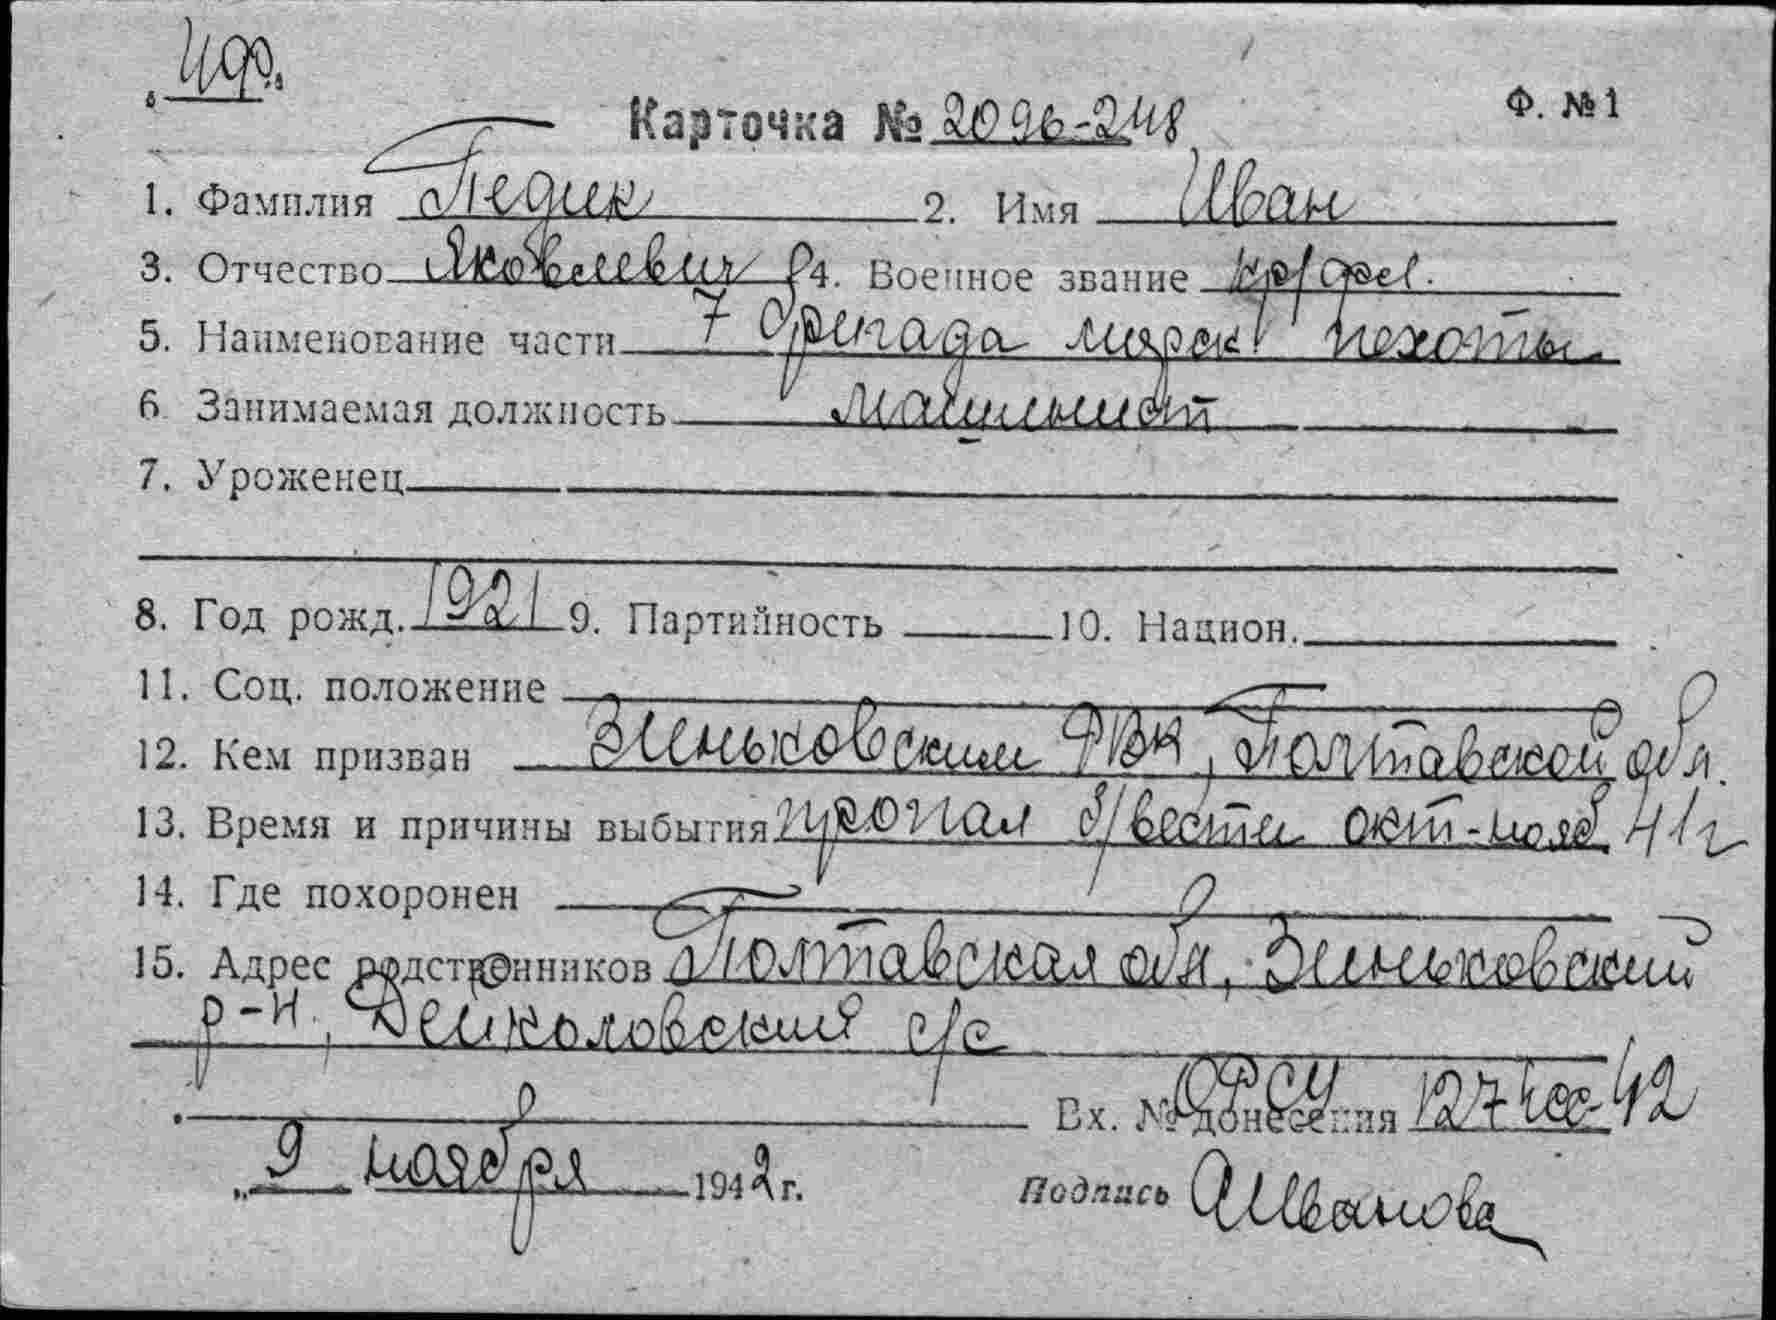 Карточка № 2096-248
Ф. №1
1. Фамилия Педик 2. Имя Иван
3. Отчество Яковлевич 4. Военное звание кр/фл.
5. Наименование части 7 бригада морск. пехоты
6. Занимаемая должность машинист
7. Уроженец
8. Год рожд. 1921 9. Партийность 10. Национ.
11. Соц. положение
12. Кем призван Зеньковским РВК, Полтавской обл.
13. Время и причины выбытия пропал б/вести окт-нояб 41г
14. Где похоронен
15. Адрес родственников Полтавская обл, Зеньковский
р-н, Дейкаловский с/с
Вх. № донесения 127 42
„ 9 ноября 1942 г.
Подпись АИванова